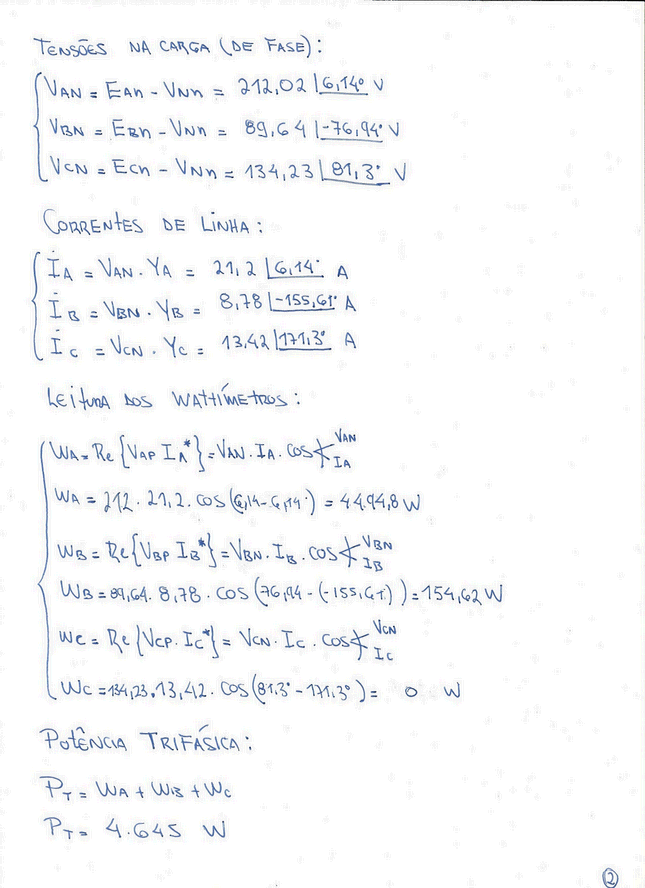 TENSÕES NA CARGA (DE FASE):
VAN = EAn - VNn = 212,02 |6,14° V
VBN = EBn - VNn = 89,64 |-76,94° V
VCN = ECn - VNn = 134,23 |81,3° V
CORRENTES DE LINHA:
İA = VAN . YA = 21,2 |6,14° A
İB = VBN . YB = 8,78 |-155,61° A
İC = VCN . YC = 13,42 |171,3° A
LEITURA DOS WATTÍMETROS:
WA = Re {VAP IA*} = VAN . IA . COS∢ VAN IA
WA = 212 . 21,2 . COS (6,14 - 6,14°) = 4494,8 W
WB = Re{VBP IB*} = VBN . IB . COS∢ VBN IB
WB = 89,64 . 8,78 . COS (76,94 - (-155,61°)) = 154,62 W
WC = Re {VCP . IC*} = VCN . IC . COS∢ VCN IC
WC = 134,23 . 13,42 . COS (81,3° - 171,3°) = 0 W
POTÊNCIA TRIFÁSICA:
PT = WA + WB + WC
PT = 4.645 W
2